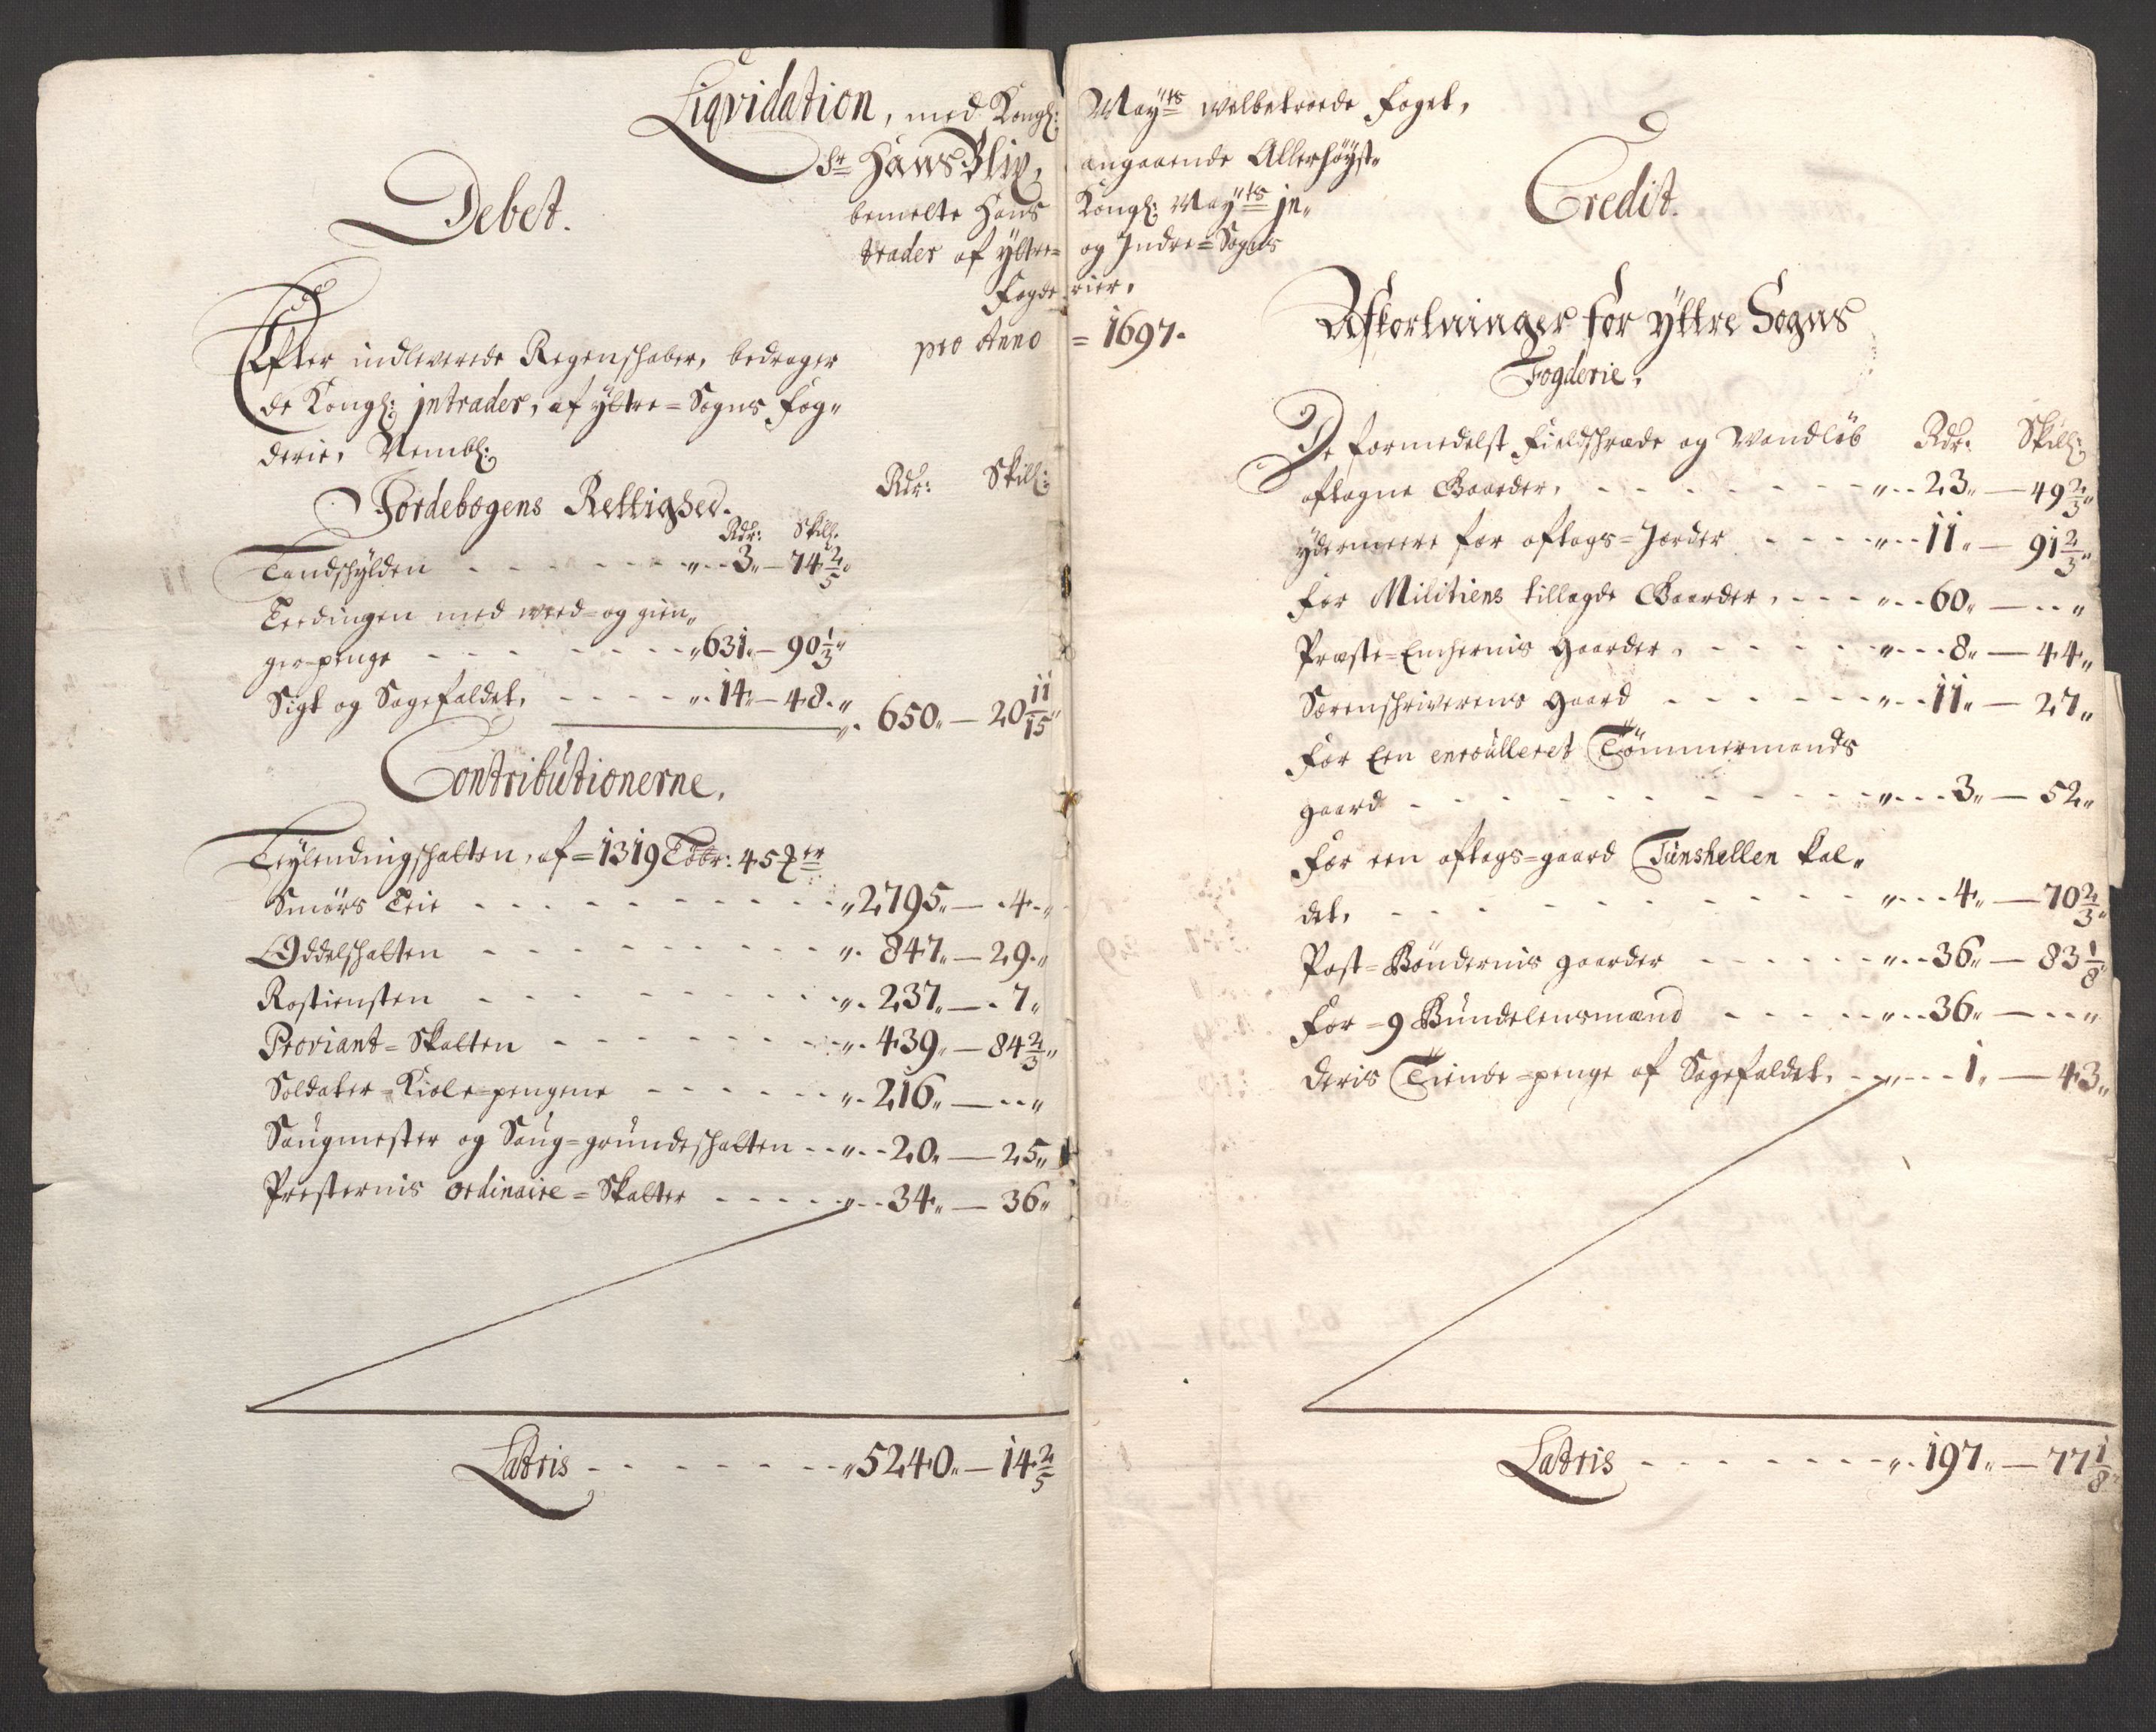 Liqvidation, med Kongl: Maÿts welbetroede foget,
Sr Hans Blix, angaaende Allerhöÿst-
bemelte Hans Kongl: Maÿts in-
trader af ÿttre- og Indre-Sogns
fogderier,
pro Anno = 1697.
Debet.
Efter indleverede Regenschaber, bedrager
de Kongl: intrader, af ÿttre-Sogns fog-
derie, Nembl:
Jordebogens Rettighed. Rdr: Skill:
Rdr: Skill:
Landschÿlden - - - 3 - 74 2/5
Leedingen med weed- og gien-
gier-penge - - - 631 - 90 1/3
Sigt og Sagefaldet, - - - 14 - 48 650 - 20 11/15
Contributionerne.
Leÿlendingschatten, af = 1319 Löbr: 45 ter
Smörs Leie - - - 2795 - 4
Oddelschatten - - - 847 - 29
Rostiensten - - - 237 - 7
Proviant-Skatten - - - 439 - 84 2/3
Soldater-Kiole-pengene - - - 216 - - -
Saugmester og Saug-grundeschatten - - 20 - 25
Presternis ordinaire-Skatter - - - 34 - 36
Latris - - - 5240 - 14 2/5
Credit.
Afkortninger for ÿttre Sogns
Fogderie,
De formedelst fieldschrede og Wandlöb Rdr: Skill:
aftagne Gaarder, - - - 23 - 49 2/3
ÿdermeere for aftags-Jorder - - - 11 - 91 2/3
for Militiens tillagde Gaarder, - - - 60 - - -
Præste-Enchernis gaarder, - - - 8 - 44
Sorenschriverens gaard - - - 11 - 27
for Een enroulleret Tömmermands
gaard - - - 3 - 52
for een aftags-gaard Tunshellen kal-
det, - - - 4 - 70 2/3
Post-Böndernis gaarder - - - 36 - 83 1/8
for = 9 Bundelensmænd - - - 36 - - -
deris Tiende-penge af Sagefaldet, - - - 1 - 43
Latris - - - 197 - 77 1/8